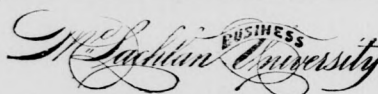 McLachlan
BUSINESS
University